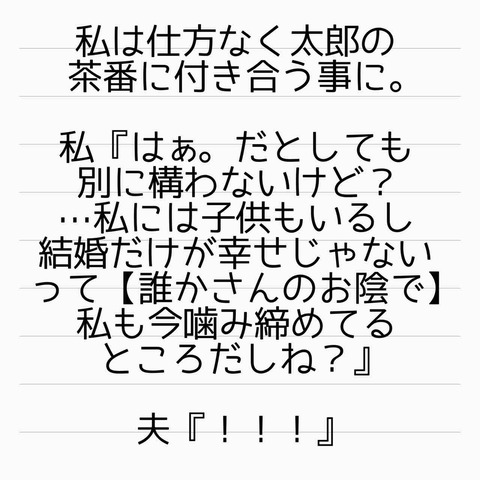 私は仕方なく太郎の
茶番に付き合う事に。
私『はぁ。だとしても
別に構わないけど？
…私には子供もいるし
結婚だけが幸せじゃない
って【誰かさんのお陰で】
私も今噛み締めてる
ところだしね？』
夫『！！！』